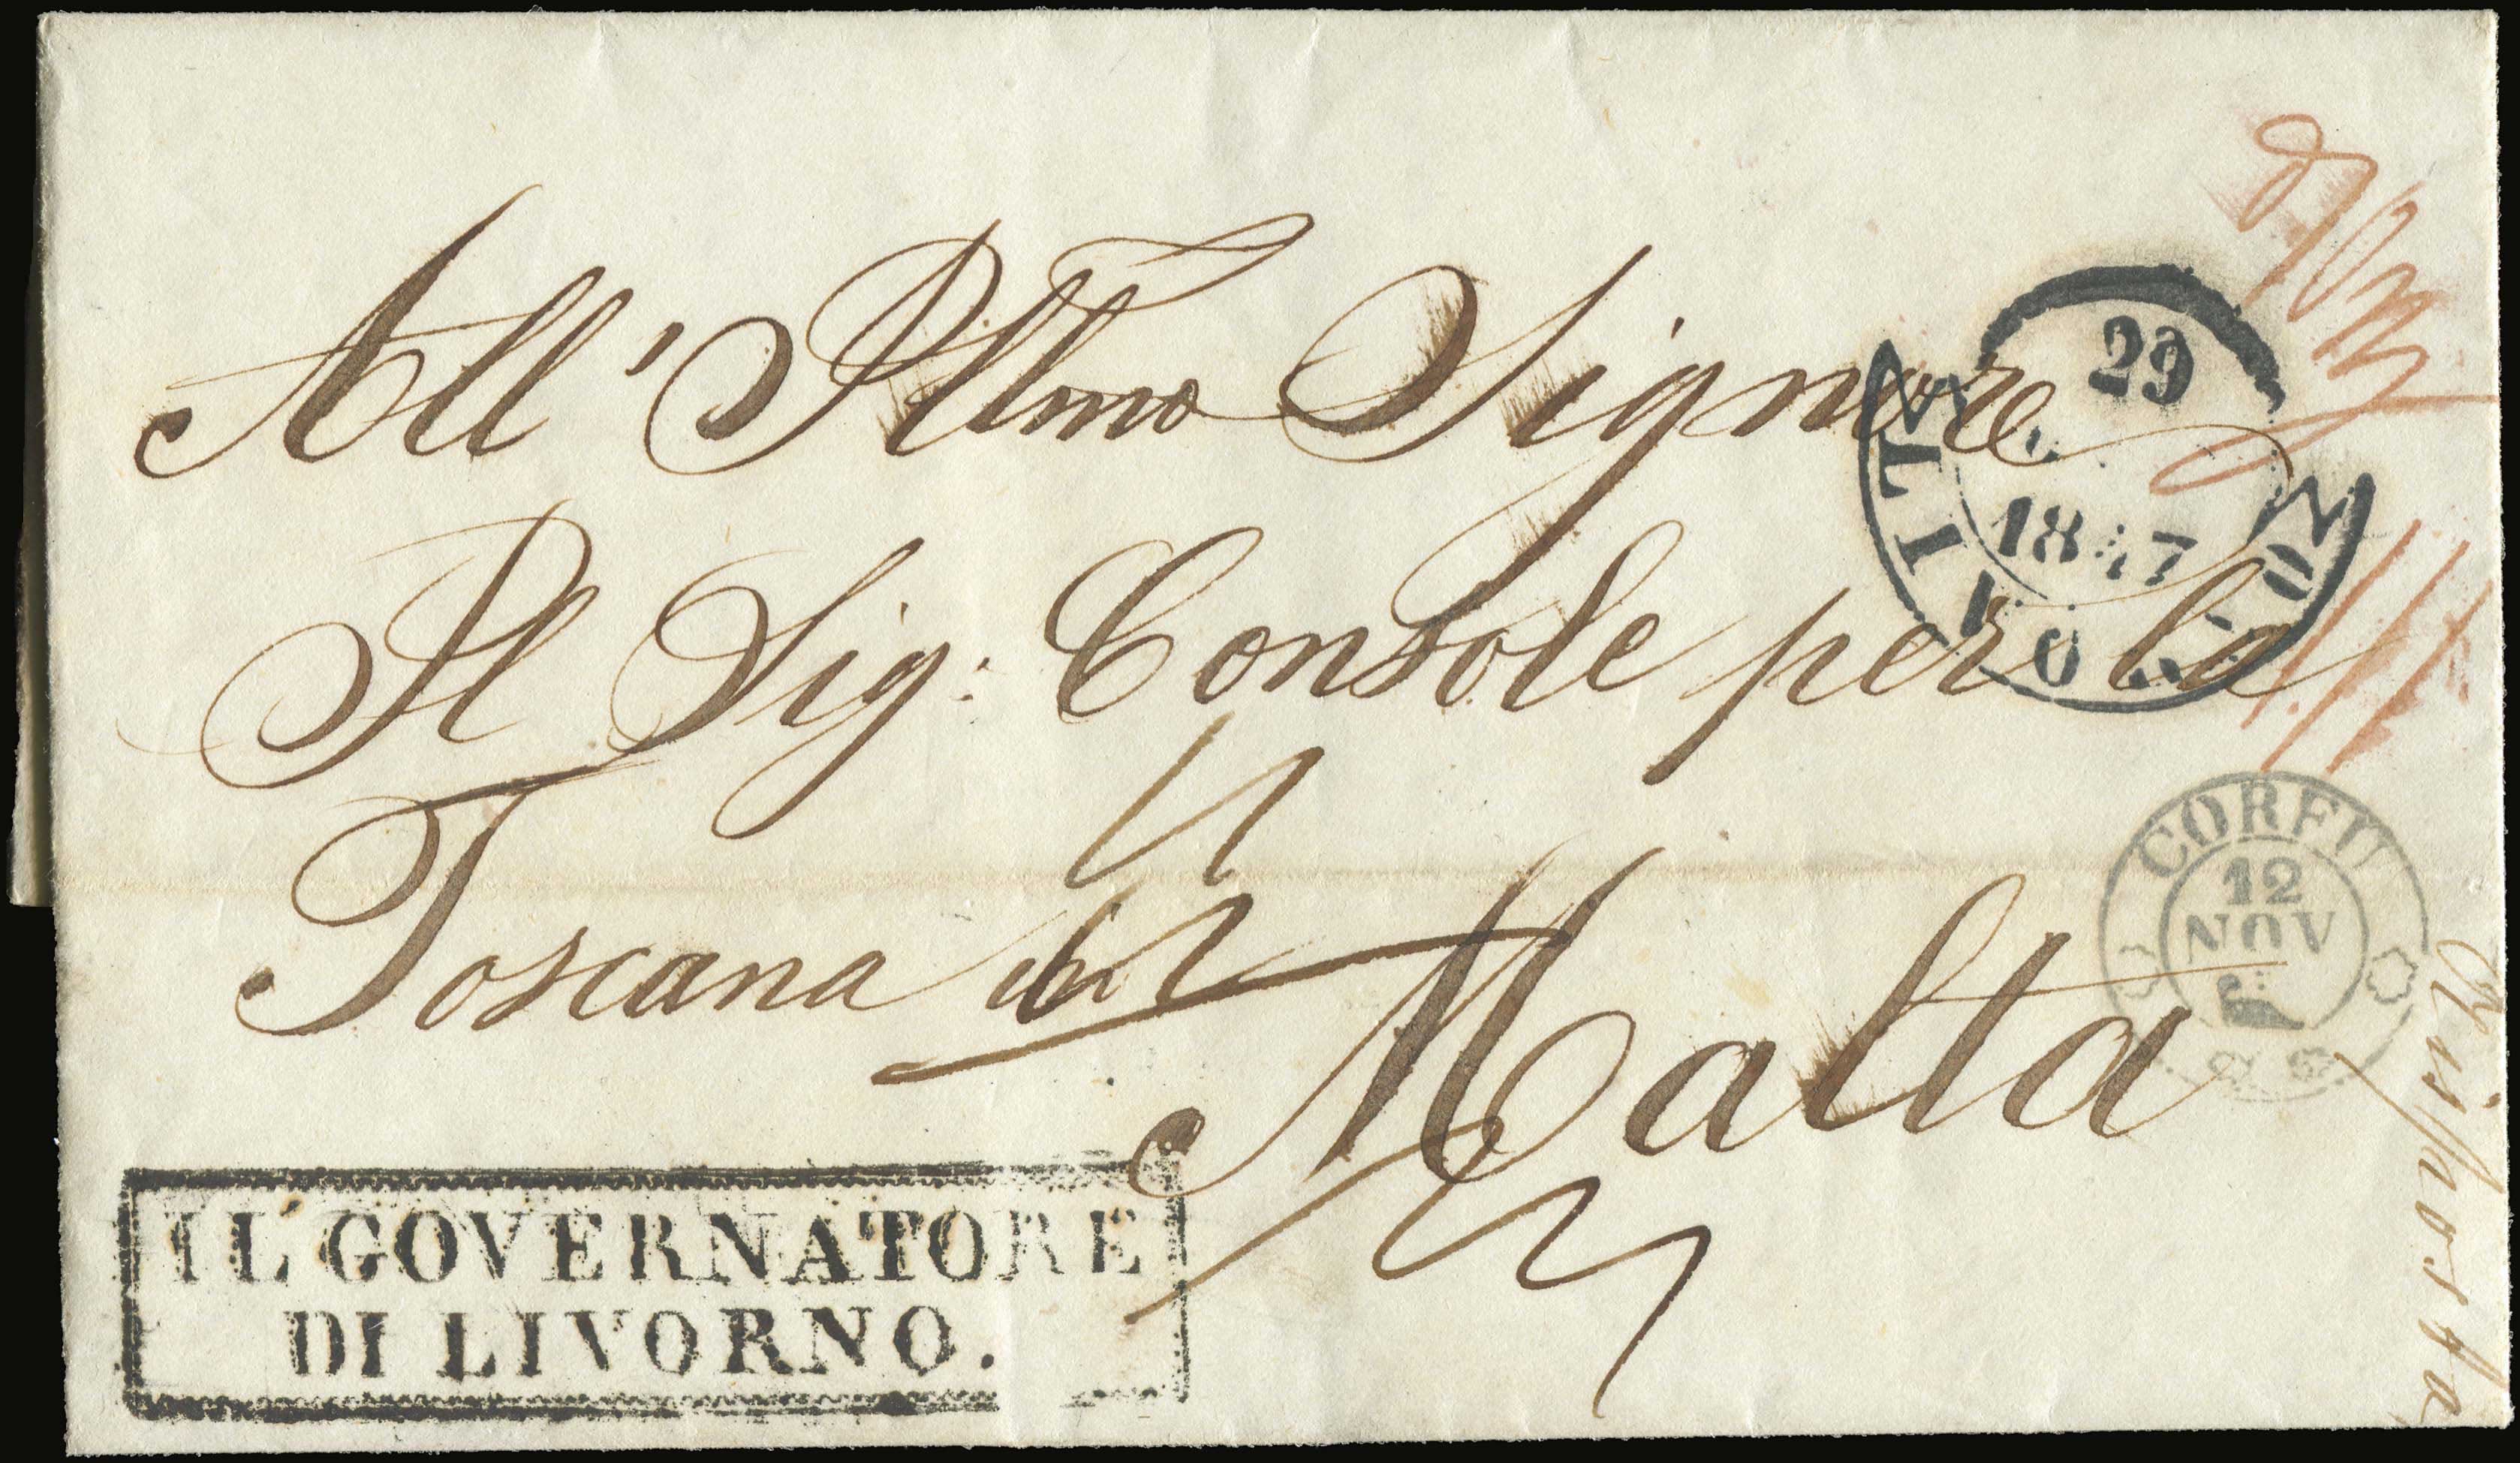 All' Illmo Signore
Il Sig: Console per la
Toscana in
Malta
IL GOVERNATORE
DI LIVORNO.
29
1847
CORFU
12
NOV
Risposta